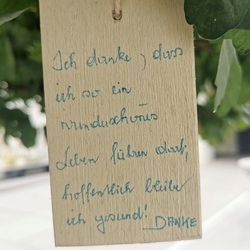 Ich danke, dass
ich so ein
wunderschönes
Leben führen darf,
hoffentlich bleibe
ich gesund! DANKE